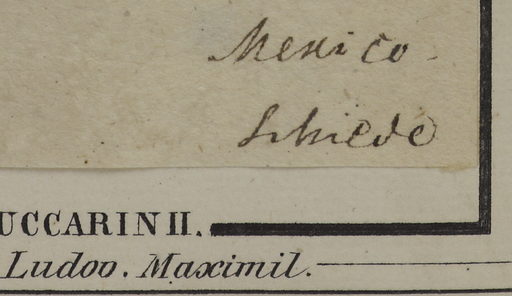 Mexico.
Schiede
UCCARINII.
Ludov. Maximil.